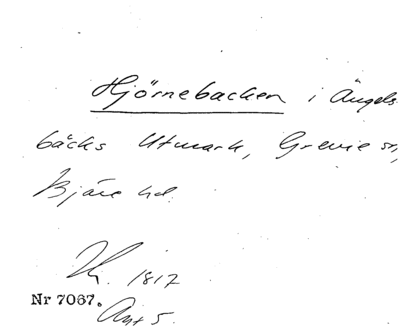 Hjörnebacken i Ängels-
bäcks Utmark, Grevie sn,
Bjäre hd.
1817
Nr 7067.
Akt 5.